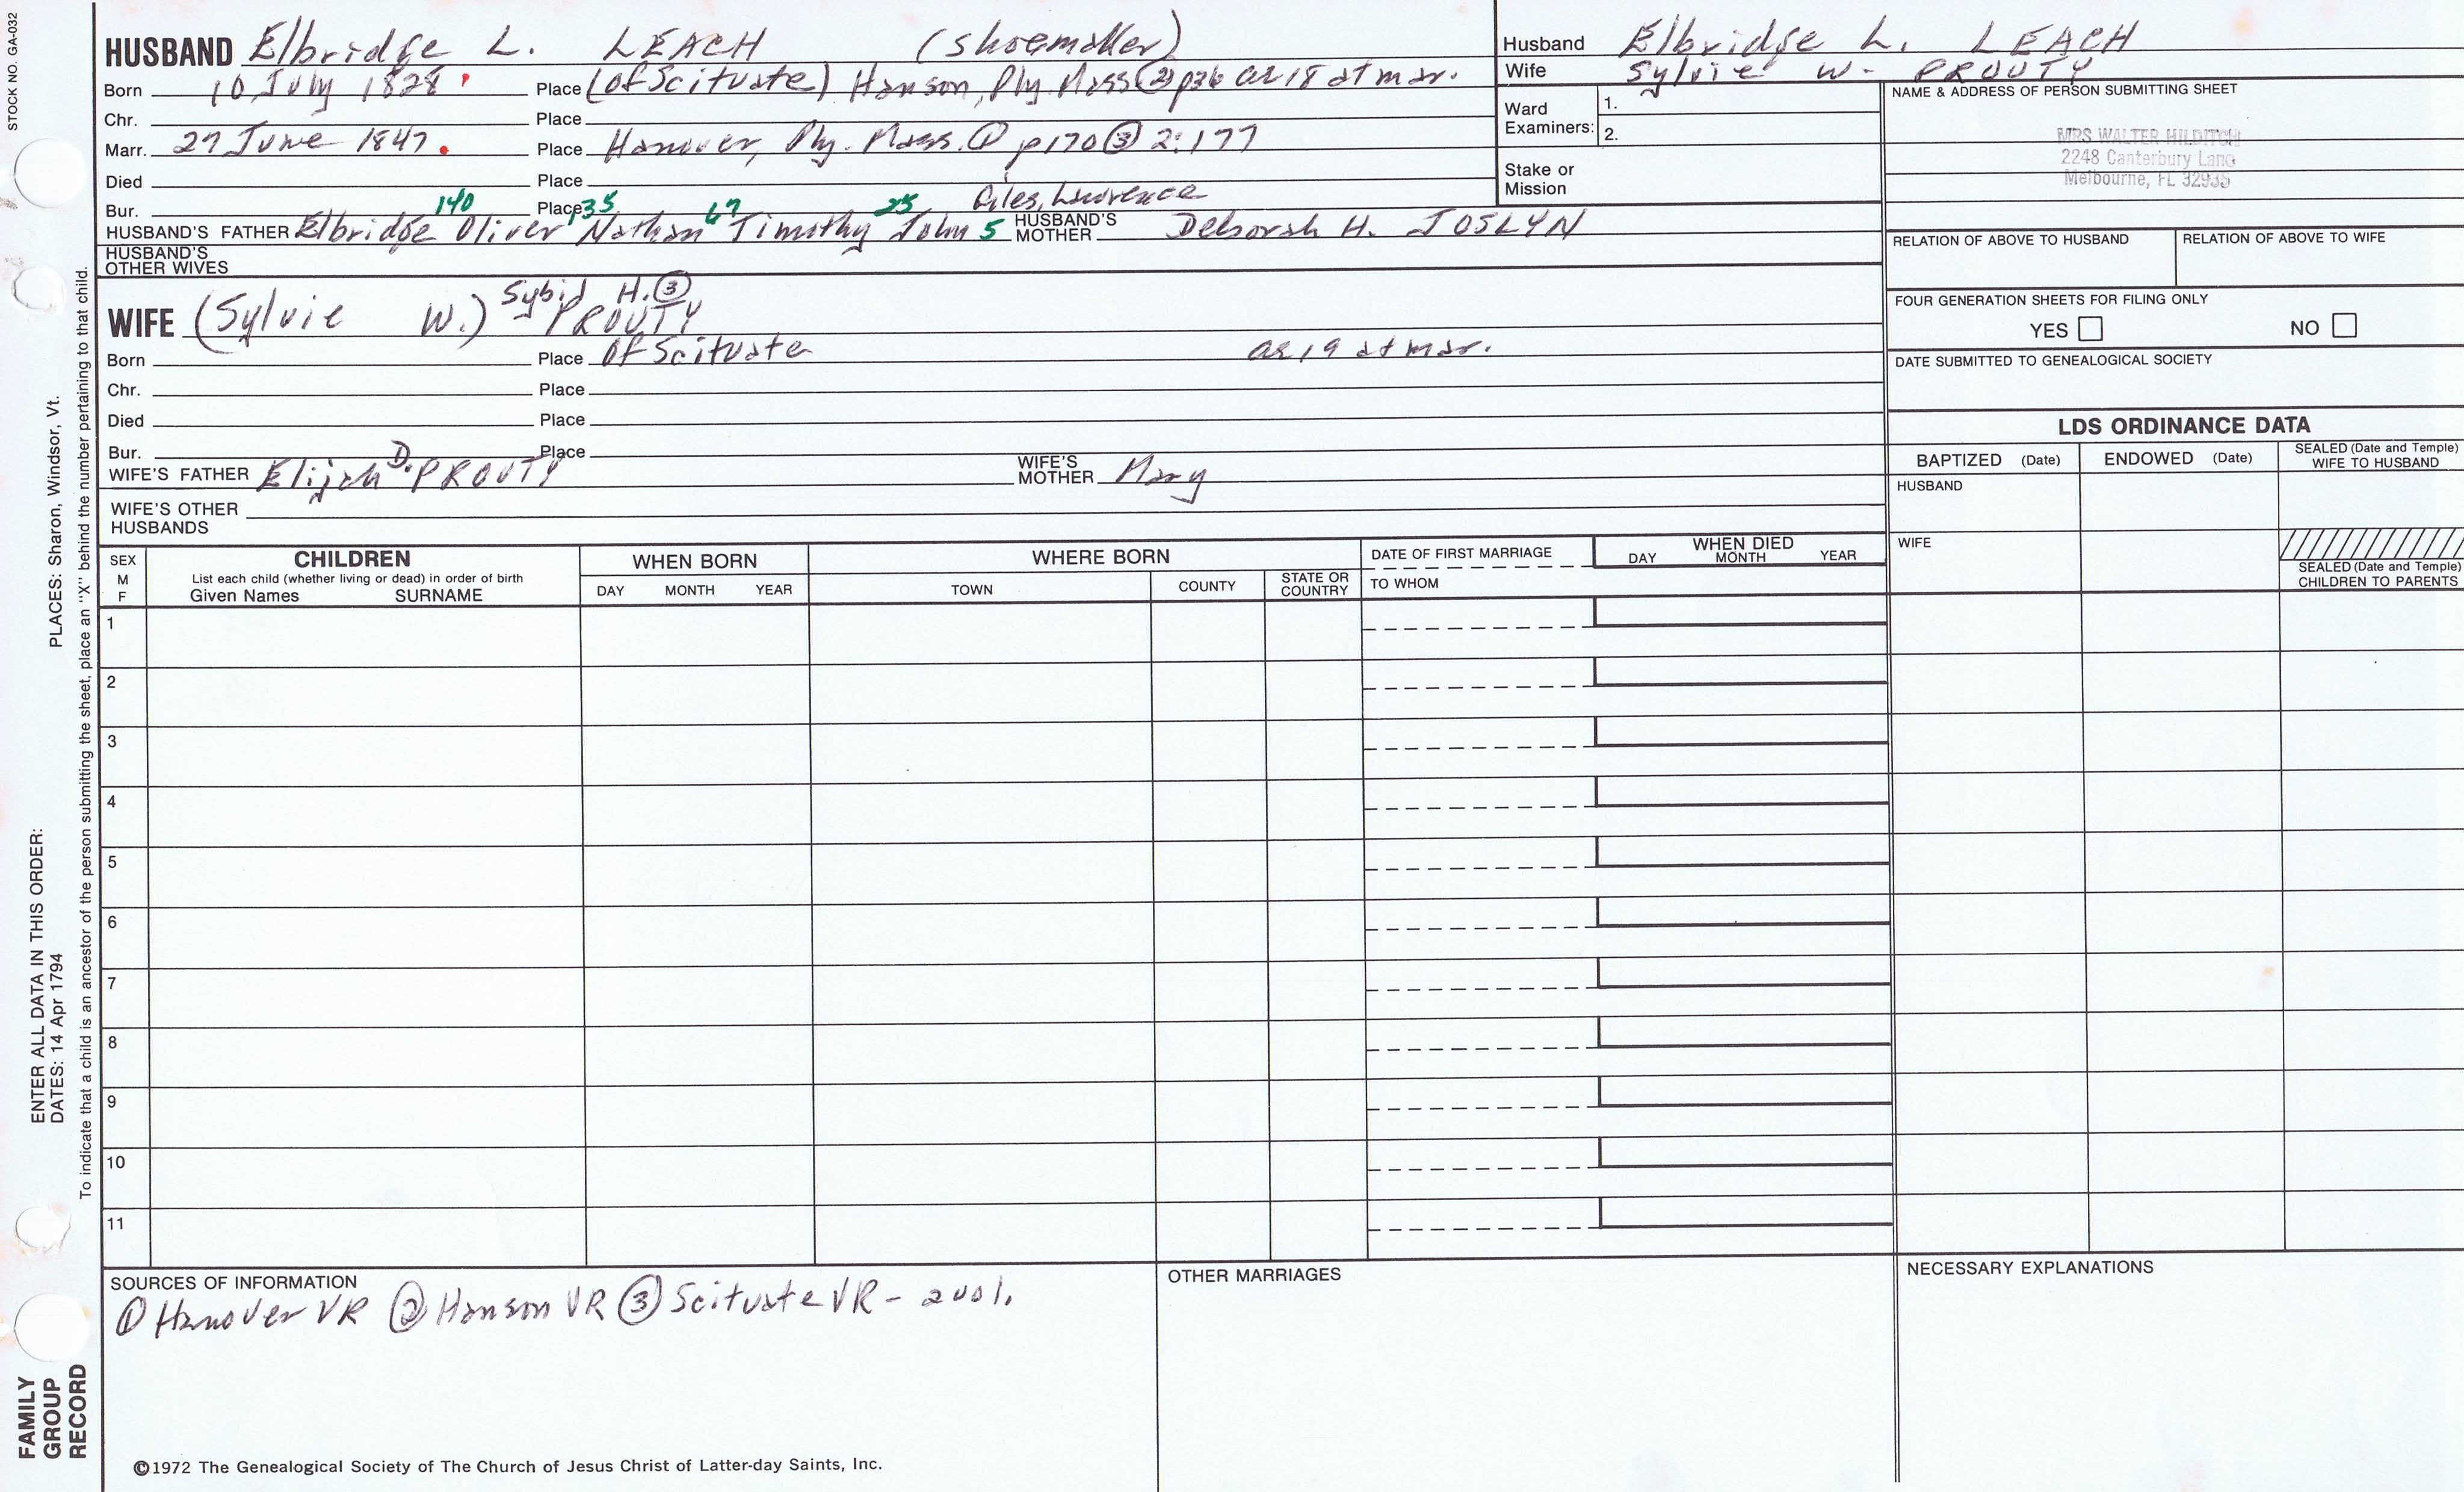 STOCK NO. GA-032
HUSBAND Elbridge L. LEACH (shoemaker)
Born 10 July 1828 Place (of Scituate) Hanson, Ply. Mass ② p36 ae 18 at mar.
Chr. Place
Marr. 27 June 1847. Place Hanover, Ply. Mass. ① p170 ③ 2:177
Died Place
Bur. Place
140 135 67 25 Giles, Lawrence
HUSBAND'S FATHER Elbridge Oliver Nathan Timothy John 5 HUSBAND'S MOTHER Deborah H. JOSLYN
HUSBAND'S OTHER WIVES
Sybid H. ③
WIFE (Sylvie W.) PROUTY
Born Place Of Scituate ae 19 at mar.
Chr. Place
Died Place
Bur. Place
WIFE'S FATHER Elijah D. PROUTY WIFE'S MOTHER Mary
WIFE'S OTHER HUSBANDS
Husband Elbridge L. LEACH
Wife Sylvie W. PROUTY
Ward Examiners: 1.
2.
Stake or Mission
NAME & ADDRESS OF PERSON SUBMITTING SHEET
MRS WALTER HILDITCH
2248 Canterbury Lane
Melbourne, FL 32935
RELATION OF ABOVE TO HUSBAND RELATION OF ABOVE TO WIFE
FOUR GENERATION SHEETS FOR FILING ONLY
YES NO
DATE SUBMITTED TO GENEALOGICAL SOCIETY
LDS ORDINANCE DATA
BAPTIZED (Date) ENDOWED (Date) SEALED (Date and Temple) WIFE TO HUSBAND
HUSBAND
WIFE
SEALED (Date and Temple) CHILDREN TO PARENTS
SEX M F
CHILDREN
List each child (whether living or dead) in order of birth
Given Names SURNAME
WHEN BORN
DAY MONTH YEAR
WHERE BORN
TOWN COUNTY STATE OR COUNTRY
DATE OF FIRST MARRIAGE
TO WHOM
WHEN DIED
DAY MONTH YEAR
1
2
3
4
5
6
7
8
9
10
11
SOURCES OF INFORMATION
① Hanover VR ② Hanson VR ③ Scituate VR - 2 vol.
OTHER MARRIAGES
NECESSARY EXPLANATIONS
©1972 The Genealogical Society of The Church of Jesus Christ of Latter-day Saints, Inc.
FAMILY GROUP RECORD
ENTER ALL DATA IN THIS ORDER:
DATES: 14 Apr 1794 PLACES: Sharon, Windsor, Vt.
To indicate that a child is an ancestor of the person submitting the sheet, place an "X" behind the number pertaining to that child.